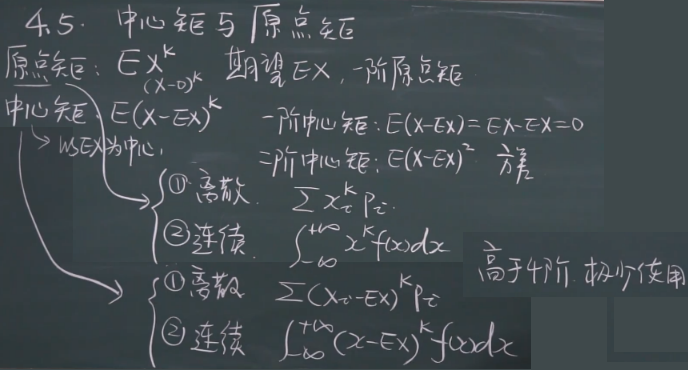 4.5. 中心矩与原点矩
原点矩: EX^k 期望EX, 一阶原点矩
(X-0)^k
中心矩: E(X-EX)^k 一阶中心矩: E(X-EX)=EX-EX=0
以EX为中心, 二阶中心矩: E(X-EX)^2 方差
①离散. ∑x_i^k p_i.
②连续. ∫_{-∞}^{+∞} x^k f(x)dx
高于4阶. 极少使用
①离散 ∑(x_i-EX)^k p_i
②连续 ∫_{-∞}^{+∞} (x-EX)^k f(x)dx